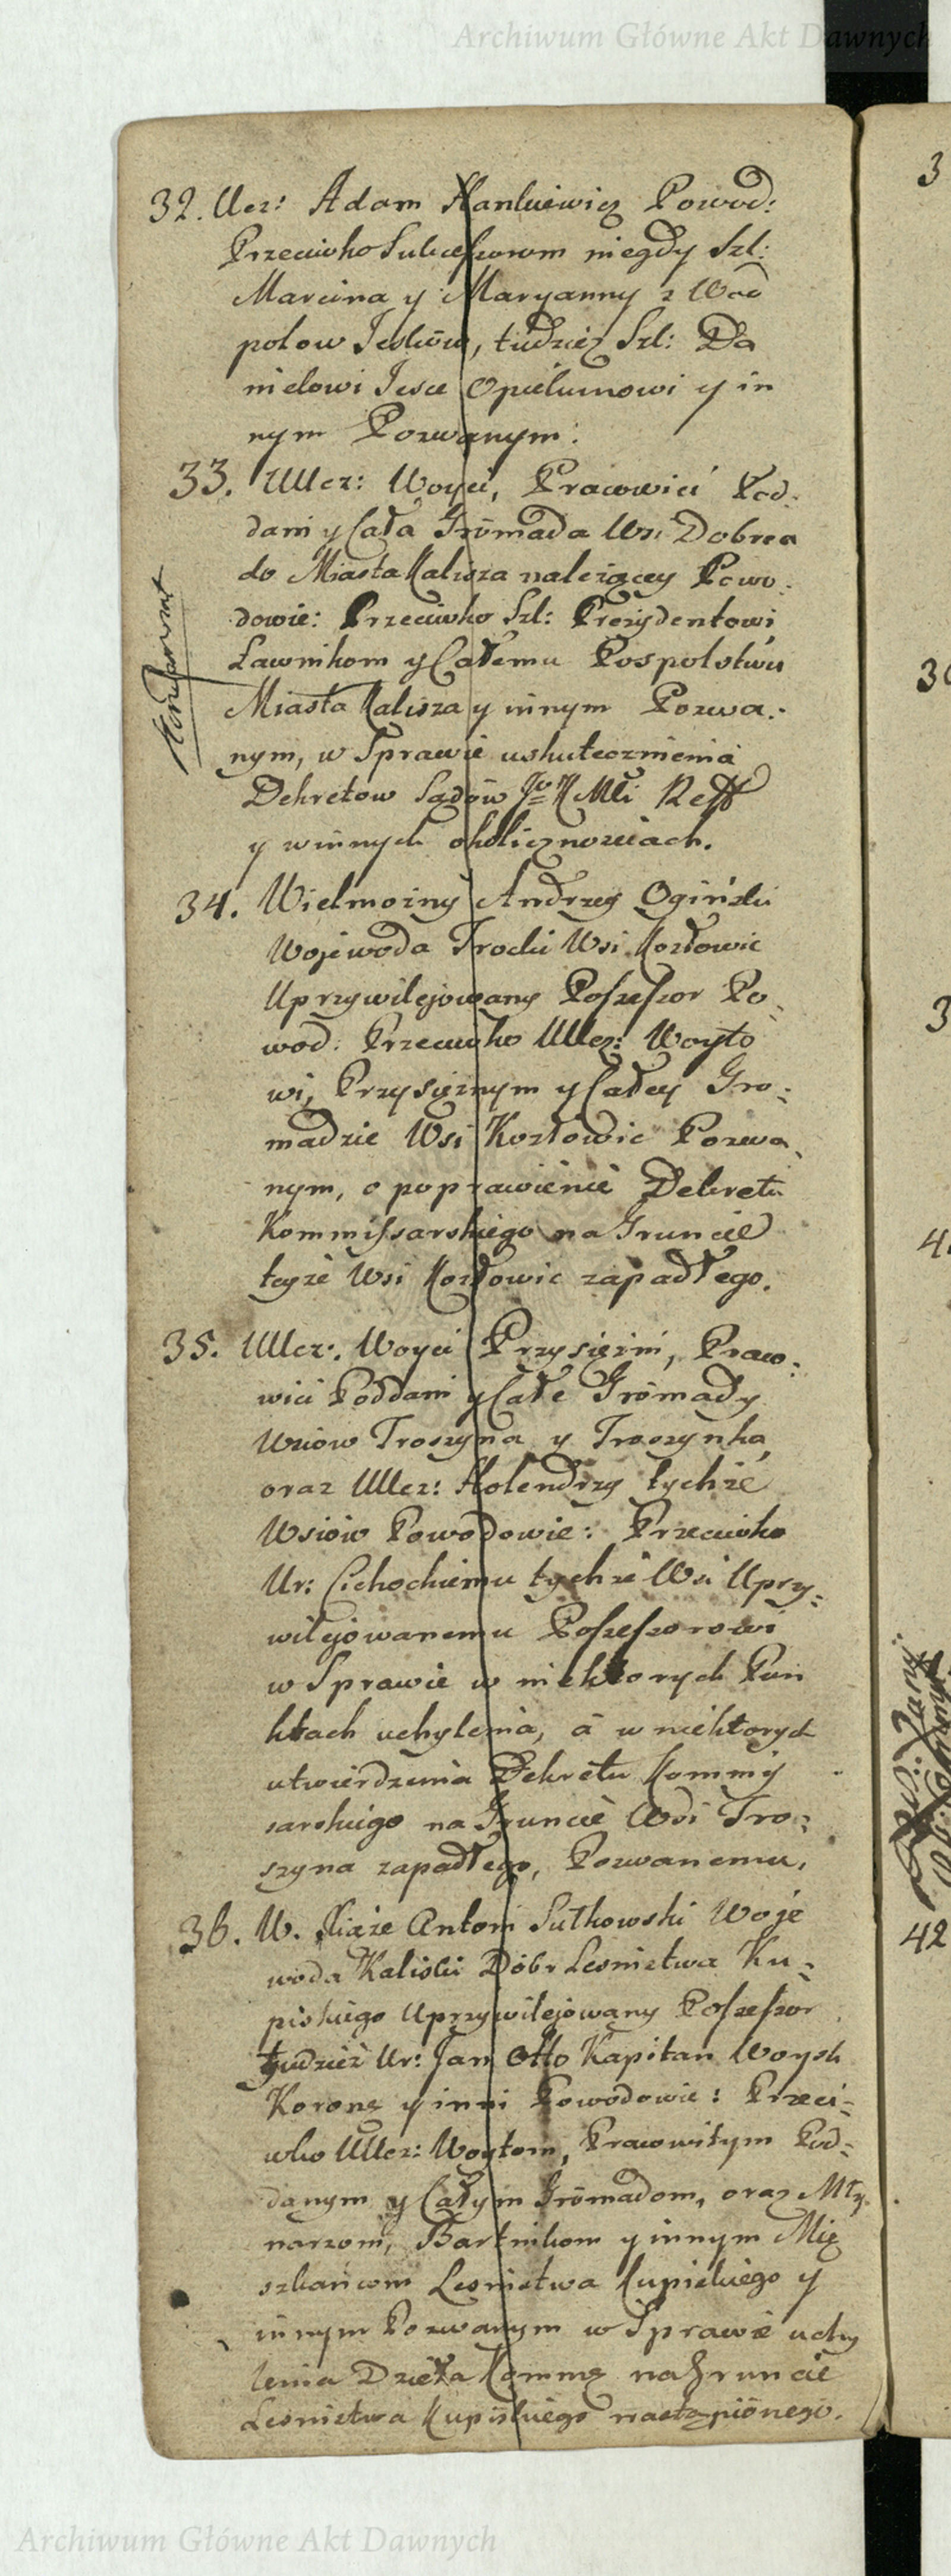 Archiwum Główne Akt Dawnych
32. Ucz: Adam Hankiewicz Powod:
Przeciwko Sukcessorom niegdy Szl:
Marcina y Maryanny z Wod
polow Jesków, tudzież Szl: Da
nielowi Jesce Opiekunowi y in
nym Pozwanym:
33. Ucz: Woyci, Pracowici Pod-
dani y Cała Gromada Wsi Dobrca
do Miasta Kalisza należącey Powo-
dowie: Przeciwko Szl: Prezydentowi
Ławnikom y Całemu Pospolstwu
Miasta Kalisza y innym Pozwa-
nym, w Sprawie uskutecznienia
Dekretow Sądów JoKMci Reff
y w innych okolicznosciach.
34. Wielmożny Andrzey Ogiński
Wojewoda Trocki Wsi Kozłowic
Uprzywilejowany Possessor Po-
wod: Przeciwko Ucz: Woyto
wi, Przysiężnym y Całey Gro-
madzie Wsi Kozłowic Pozwa-
nym, o poprawienie Dekretu
Kommissarskiego na Gruncie
teyże Wsi Kozłowic zapadłego.
35. Ucz: Woyci Przysiężni, Praco-
wici Poddani y Całe Gromady
Wsiow Troszyna y Troszynka,
oraz Ucz: Holendrzy tychże
Wsiow Powodowie: Przeciwko
Ur: Cichockiemu tychże Wsi Uprzy-
wilejowanemu Possessorowi
w Sprawie w niektorych Pun
ktach uchylenia, a w niektorych
utwierdzenia Dekretu Kommis
sarskiego na Gruncie Wsi Tro-
szyna zapadłego, Pozwanemu.
36. W. Xiąże Antoni Sułkowski Woje
woda Kaliski Dobr Lesnictwa Ku-
piskiego Uprzywilejowany Possessor
tudzież Ur: Jan Otto Kapitan Woysk
Koronę y inni Powodowie: Przeci-
wko Ucz: Woytom, Pracowitym Pod-
danym y Całym Gromadom, oraz Mły
narzom, Bartnikom y innym Mię
szkańcom Lesnictwa Kupiskiego y
innym Pozwanym w Sprawie uchy
lenia Dzieła Kommę na Gruncie
Lesnictwa Kupiskiego nastąpionego.
3
3
42
Archiwum Główne Akt Dawnych